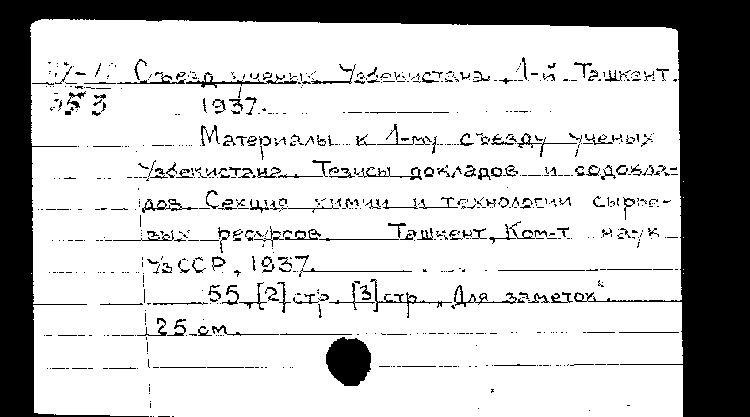 Съезд ученых Узбекистана, 1-й. Ташкент.
1937.
Материалы к 1-му съезду ученых
Узбекистана. Тезисы докладов и содокла-
дов. Секция химии и технологии сырье-
вых ресурсов. Ташкент, Ком-т наук
УзССР, 1937.
55, [2] стр. [3] стр. „Для заметок“.
25 см.